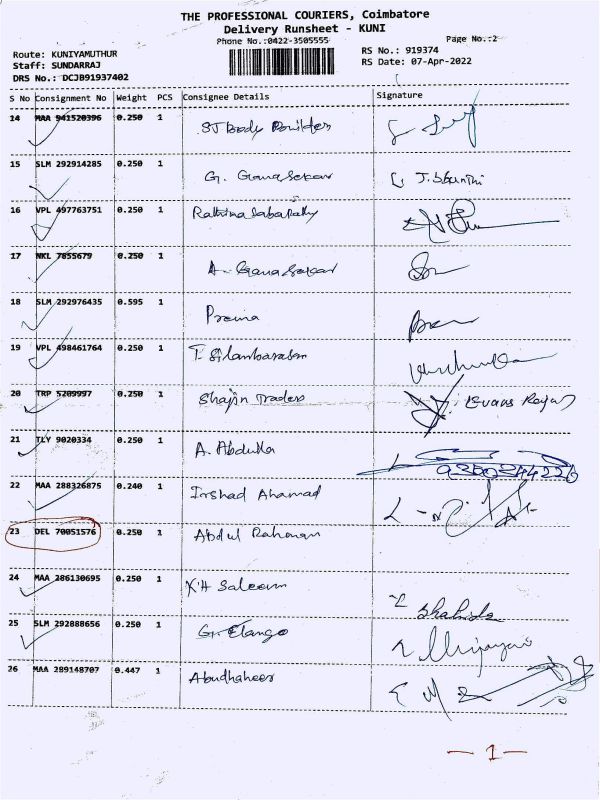 THE PROFESSIONAL COURIERS, Coimbatore
Delivery Runsheet - KUNI
Phone No.:0422-3505555
Page No.:2
Route: KUNIYAMUTHUR
Staff: SUNDARRAJ
DRS No.: DCJB91937402
RS No.: 919374
RS Date: 07-Apr-2022
S No Consignment No Weight PCS Consignee Details Signature
14 MAA 941520396 0.250 1 ST Body Builders
15 SLM 292914285 0.250 1 G. Gunasekar
16 VPL 497763751 0.250 1 Rathinasabapathy
17 NKL 7855679 0.250 1 A. Gunasekar
18 SLM 292976435 0.595 1 Prema
19 VPL 498461764 0.250 1 T. Silambarasan
20 TRP 5209997 0.250 1 Shajin Traders
21 TLY 9020334 0.250 1 A. Abdulla
22 MAA 288326875 0.240 1 Irshad Ahamad
23 DEL 70051576 0.250 1 Abdul Rahman
24 MAA 286130695 0.250 1 K.H Saleem
25 SLM 292888656 0.250 1 G. Elango
26 MAA 289148707 0.447 1 Abudhaheer
- 1 -